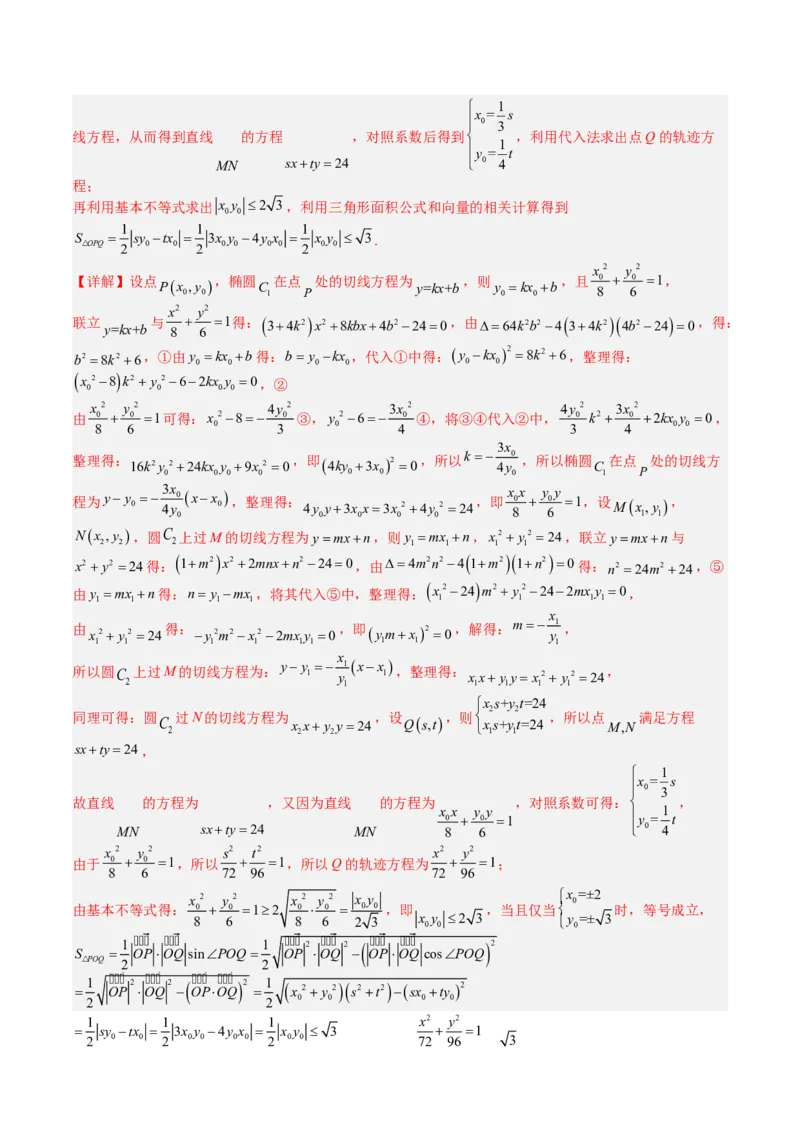 线方程，从而得到直线 MN 的方程 sx+ty=24 ，对照系数后得到{x₀=1/3 s, y₀=1/4 t ，利用代入法求出点Q的轨迹方
程；
再利用基本不等式求出 |x₀y₀|≤2√3，利用三角形面积公式和向量的相关计算得到
S△OPQ = 1/2|sy₀−tx₀| = 1/2|3x₀y₀−4y₀x₀| = 1/2|x₀y₀| ≤ √3．
【详解】设点P(x₀,y₀)，椭圆C₁在点P处的切线方程为y=kx+b，则y₀=kx₀+b，且x₀²/8+y₀²/6=1，
联立y=kx+b与x²/8+y²/6=1得：(3+4k²)x²+8kbx+4b²−24=0，由Δ=64k²b²−4(3+4k²)(4b²−24)=0，得：
b²=8k²+6，①由y₀=kx₀+b得：b=y₀−kx₀，代入①中得：(y₀−kx₀)²=8k²+6，整理得：
(x₀²−8)k²+y₀²−6−2kx₀y₀=0，②
由x₀²/8+y₀²/6=1可得：x₀²−8=−4y₀²/3 ③，y₀²−6=−3x₀²/4 ④，将③④代入②中，4y₀²/3 k²+3x₀²/4+2kx₀y₀=0，
整理得：16k²y₀²+24kx₀y₀+9x₀²=0，即(4ky₀+3x₀)²=0，所以k=−3x₀/4y₀，所以椭圆C₁在点P处的切线方
程为y−y₀=−3x₀/4y₀(x−x₀)，整理得：4y₀y+3x₀x=3x₀²+4y₀²=24，即x₀x/8+y₀y/6=1，设M(x₁,y₁)，
N(x₂,y₂)，圆C₂上过M的切线方程为y=mx+n，则y₁=mx₁+n，x₁²+y₁²=24，联立y=mx+n与
x²+y²=24得：(1+m²)x²+2mnx+n²−24=0，由Δ=4m²n²−4(1+m²)(1+n²)=0得：n²=24m²+24，⑤
由y₁=mx₁+n得：n=y₁−mx₁，将其代入⑤中，整理得：(x₁²−24)m²+y₁²−24−2mx₁y₁=0，
由x₁²+y₁²=24得：−y₁²m²−x₁²−2mx₁y₁=0，即(y₁m+x₁)²=0，解得：m=−x₁/y₁，
所以圆C₂上过M的切线方程为：y−y₁=−x₁/y₁(x−x₁)，整理得：x₁x+y₁y=x₁²+y₁²=24，
同理可得：圆C₂过N的切线方程为x₂x+y₂y=24，设Q(s,t)，则{x₂s+y₂t=24, x₁s+y₁t=24，所以点M,N满足方程
sx+ty=24，
故直线MN的方程为sx+ty=24，又因为直线MN的方程为x₀x/8+y₀y/6=1，对照系数可得：{x₀=1/3 s, y₀=1/4 t，
由于x₀²/8+y₀²/6=1，所以s²/72+t²/96=1，所以Q的轨迹方程为x²/72+y²/96=1；
由基本不等式得：x₀²/8+y₀²/6=1≥2√(x₀²/8·y₀²/6)=|x₀y₀|/2√3，即|x₀y₀|≤2√3，当且仅当{x₀=±2, y₀=±√3时，等号成立，
S△POQ=1/2|OP|·|OQ|sin∠POQ=1/2√(|OP|²·|OQ|²−(|OP|·|OQ|cos∠POQ)²)
=1/2√(|OP|²·|OQ|²−(OP·OQ)²)=1/2√((x₀²+y₀²)(s²+t²)−(sx₀+ty₀)²)
=1/2|sy₀−tx₀|=1/2|3x₀y₀−4y₀x₀|=1/2|x₀y₀|≤√3 x²/72+y²/96=1 √3